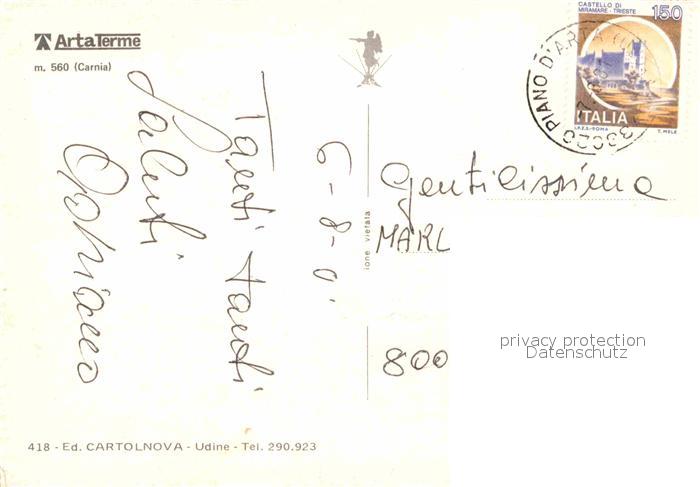 Arta Terme
m. 560 (Carnia)
Tanti tanti
Saluti
6-8-8
Gentilissima
MARL
800
ione vietata
CASTELLO DI
MIRAMARE - TRIESTE
150
ITALIA
I.P.Z.S. - ROMA
T. MELE
PIANO D'ARTA
33020
privacy protection
Datenschutz
418 - Ed. CARTOLNOVA - Udine - Tel. 290.923